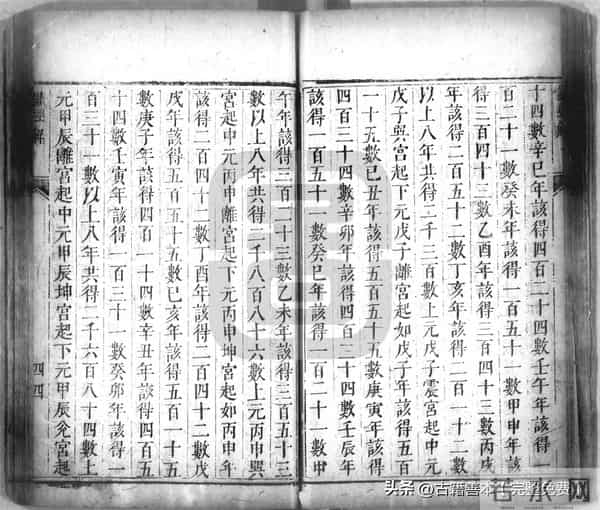 十四數辛巳年該得四百二十四數壬午年該得一
百二十一數癸未年該得一百五十一數甲申年該
得三百四十三數乙酉年該得三百四十三數丙戌
年該得二百五十二數丁亥年該得二百一十二數
以上八年共得二千三百數上元戊子震宮起中元
戊子巽宮起下元戊子離宮起如戊子年該得五百
一十五數己丑年該得五百五十五數庚寅年該得
四百三十四數辛卯年該得四百三十四數壬辰年
該得一百五十一數癸巳年該得一百二十一數甲
午年該得三百二十三數乙未年該得三百五十三
數以上八年共得二千八百八十六數上元丙申巽
宮起中元丙申離宮起下元丙申坤宮起如丙申年
該得二百四十二數丁酉年該得二百四十二數戊
戌年該得五百五十五數己亥年該得五百一十五
數庚子年該得四百一十四數辛丑年該得四百五
十四數壬寅年該得一百三十一數癸卯年該得一
百三十一數以上八年共得二千六百八十四數上
元甲辰離宮起中元甲辰坤宮起下元甲辰兌宮起
四四
头条 @古籍善本 完整免费